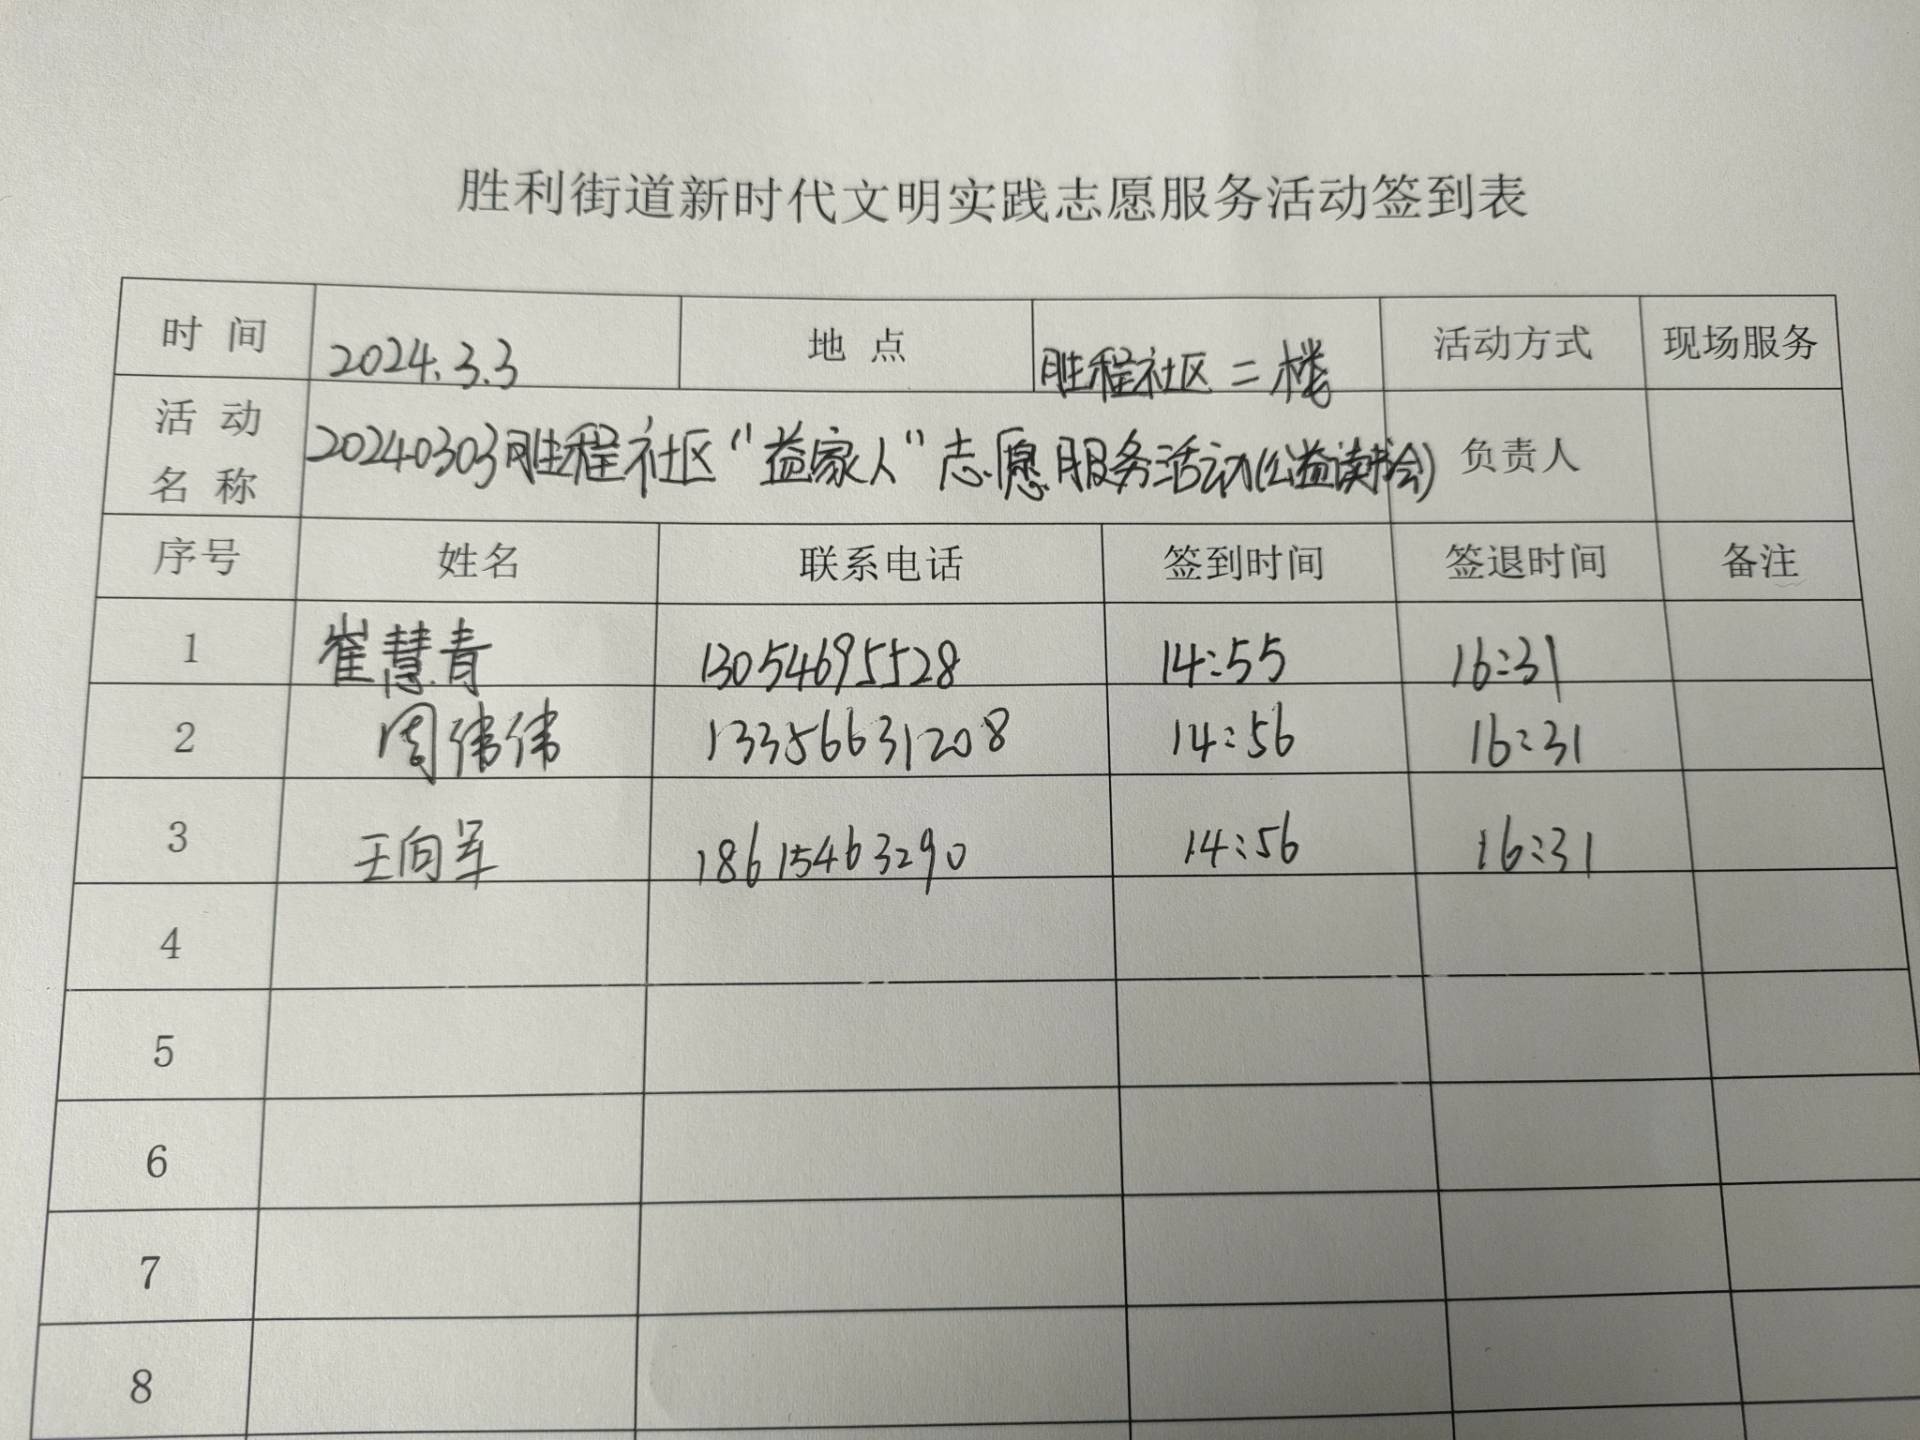 胜利街道新时代文明实践志愿服务活动签到表
时 间 2024.3.3 地 点 胜程社区二楼 活动方式 现场服务
活 动 名 称 20240303胜程社区“益家人”志愿服务活动(公益读书会) 负责人
序号 姓名 联系电话 签到时间 签退时间 备注
1 崔慧青 13054695528 14:55 16:31
2 周伟伟 13356631208 14:56 16:31
3 王向军 18615463290 14:56 16:31
4
5
6
7
8